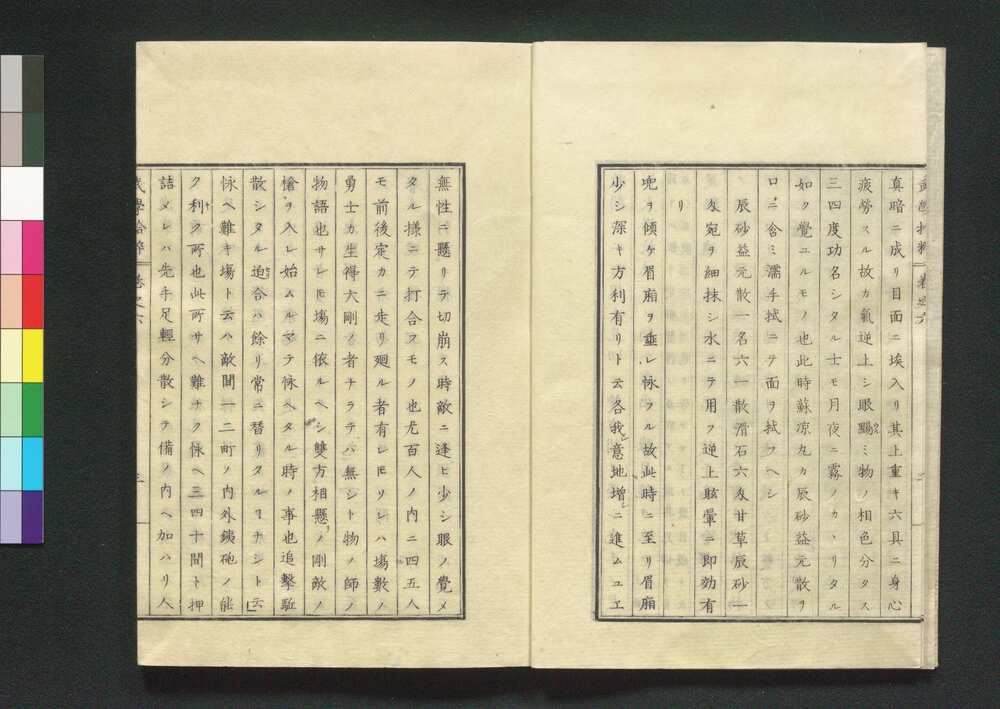 真暗ニ成リ目面ニ埃入リ其上重キ六具ニ身心
疲勞スル故カ氣逆上シ眼ミ物ノ相色分タス
三四度功名シタル士モ月夜ニ霧ノカヽリタル
如ク覺ユルモノ也此時蘇凉丸カ辰砂益元散ヲ
口ニ含ミ濡手拭ニテ面ヲ拭フヘシ
辰砂益元散一名六一散滑石六匁甘草辰砂一
匁宛ヲ細抹シ水ニテ用フ逆上眩暈ニ即効有
リ
兜ヲ傾ケ眉廂ヲ垂レ怺フル故此時ニ至リ眉廂
少シ深キ方利有リト云各我意地増ニ進ムユエ
無性ニ懸リテ切崩ス時敵ニ逢ヒ少シ眼ノ覺メ
タル様ニテ打合フモノ也尤百人ノ内ニ四五人
モ前後定カニ走リ廻ル者有レ𪜈リレハ塲數ノ
勇士カ生得大剛ノ者ナラテハ無シト物ノ師ノ
物語也サレ𪜈塲ニ依ルヘシ雙方相懸ノ剛敵ノ
槍ヲ入レ始ムルマテ怺ヘタル時ノ事也追擊駈
散シタル迫合ハ餘リ常ニ替リタルヿナシト云
怺ヘ難キ塲ト云ハ敵間一二町ノ内外銕砲ノ能
ク利ク所也此所サヘ難ナク怺ヘ三四十間ト押
詰メレハ先手足輕分散シテ備ノ内ヘ加ハリ人
武學拾粹 卷之六